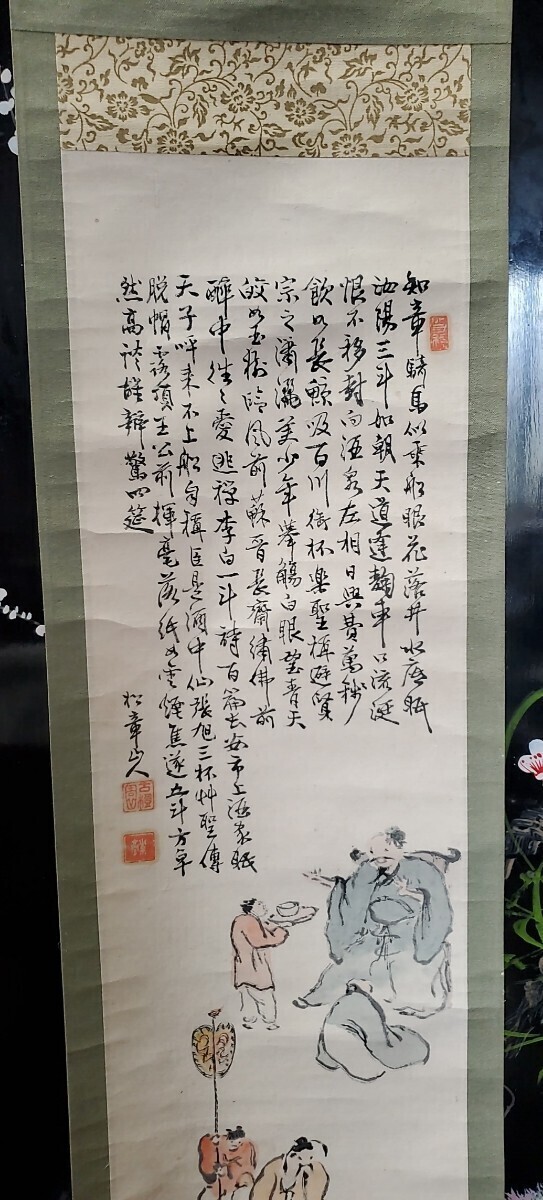 知章騎馬似乗船眼花落井水底眠
汝陽三斗始朝天道逢麹車口流涎
恨不移封向酒泉左相日興費萬錢
飲如長鯨吸百川銜杯楽聖称避賢
宗之瀟灑美少年挙觴白眼望青天
皎如玉樹臨風前蘇晋長齋繍佛前
酔中往々愛逃禅李白一斗詩百篇長安市上酒家眠
天子呼来不上船自称臣是酒中仙張旭三杯艸聖傳
脱帽露頂王公前揮毫落紙如雲煙焦遂五斗方卓
然高談雄辯驚四筵
松章山人